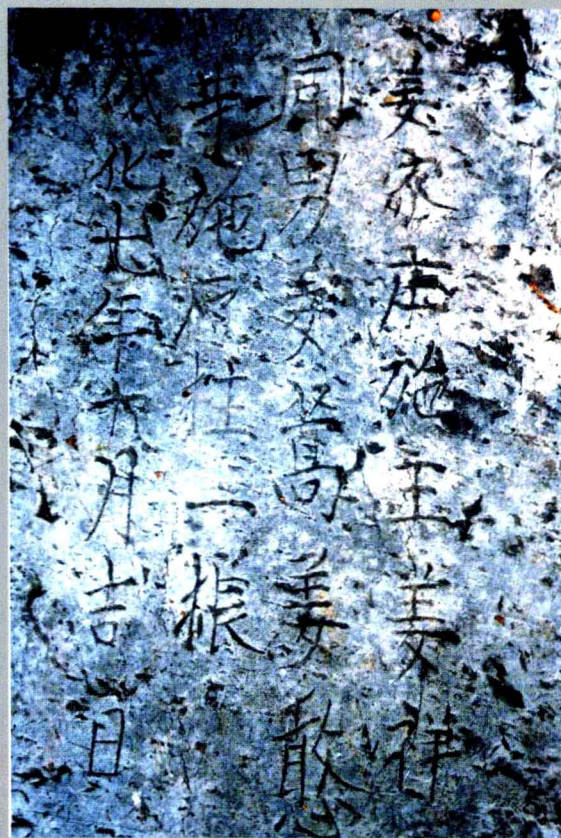 姜家庄施主姜祥
同男姜嵩姜憨
等施石柱一根
成化七年六月吉日